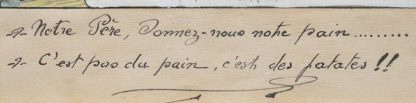 - Notre Père, Donnez-nous notre pain.........
- C'est pas du pain, c'est des patates !!